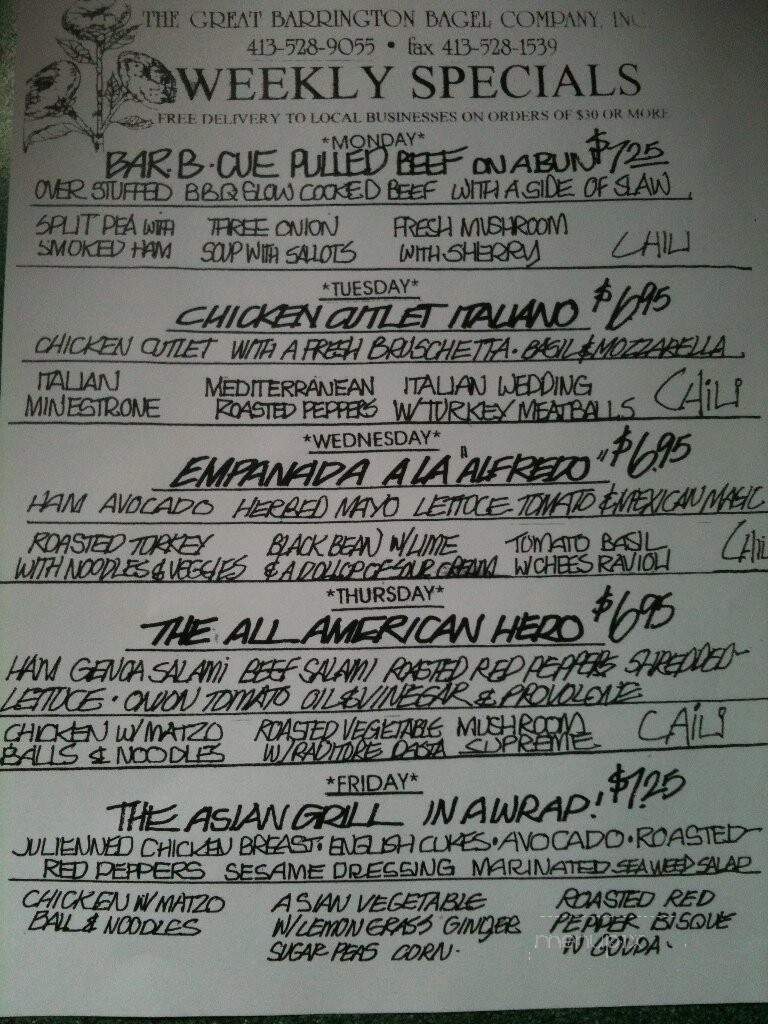 THE GREAT BARRINGTON BAGEL COMPANY, INC.
413-528-9055 • fax 413-528-1539
WEEKLY SPECIALS
FREE DELIVERY TO LOCAL BUSINESSES ON ORDERS OF $30 OR MORE
*MONDAY*
BAR.B.CUE PULLED BEEF ON A BUN $7.25
OVER STUFFED B.B.Q SLOW COOKED BEEF WITH A SIDE OF SLAW
SPLIT PEA WITH THREE ONION FRESH MUSHROOM
SMOKED HAM SOUP WITH SALLOTS WITH SHERRY CHILI
*TUESDAY*
CHICKEN CUTLET ITALIANO $6.95
CHICKEN CUTLET WITH A FRESH BRUSCHETTA • BASIL & MOZZARELLA
ITALIAN MEDITERRANEAN ITALIAN WEDDING CHILI
MINESTRONE ROASTED PEPPERS W/TURKEY MEATBALLS
*WEDNESDAY*
EMPANADA A LA "ALFREDO" $6.95
HAM AVOCADO HERBED MAYO LETTOCE TOMATO & MEXICAN MAGIC
ROASTED TORKEY BLACK BEAN W/LIME TOMATO BASIL Chili
WITH NOODLES & VEGGIES & A DOLLOP OF SOUR CREAM W/CHEES RAVIOLI
*THURSDAY*
THE ALL AMERICAN HERO $6.95
HAM GENOA SALAMI BEEF SALAMI ROASTED RED PEPPERS SHREDDED
LETTOCE • ONION TOMATO OIL & VINEGAR & PROVOLONE
CHICKEN W/MATZO ROASTED VEGETABLE MUSHROOM CHILI
BALLS & NOODLES W/RADITORE PASTA SUPREME
*FRIDAY*
THE ASIAN GRILL IN A WRAP! $7.25
JULIENNED CHICKEN BREAST • ENGLISH CUKES • AVOCADO • ROASTED
RED PEPPERS SESAME DRESSING MARINATED SEAWEED SALAD
CHICKEN W/MATZO ASIAN VEGETABLE ROASTED RED
BALL & NOODLES W/LEMON GRASS GINGER PEPPER BISQUE
SUGAR PEAS CORN. W GOUDA.